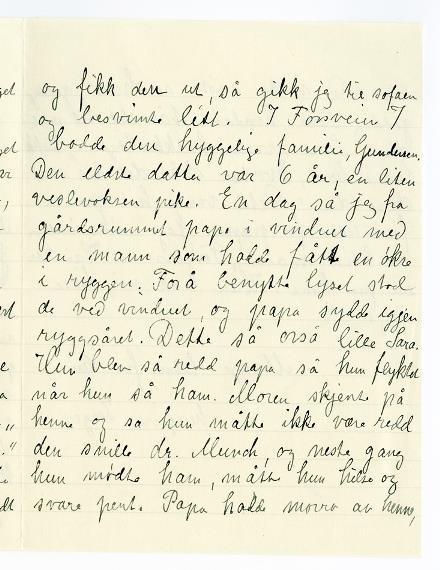 og fikk den ut, så gikk jeg til sofaen
og besvimte litt. I Forsveien 7
bodde den hyggelige familie, Gundersen.
Den eldste datter var 6 år, en liten
veslevoksen pike. En dag så jeg fra
gårdsrummet papa i vinduet med
en mann som hadde fått en økse
i ryggen. For å benytte lyset stod
de ved vinduet, og papa sydde iggen
ryggsåret. Dette så også lille Sara.
Hun blev så redd papa så hun flyktet
når hun så ham. Moren skjente på
henne og sa hun måtte ikke være redd
den snille dr. Munch, og neste gang
hun mødte ham, måtte hun hilse og
svare pent. Papa hadde morro av henne,